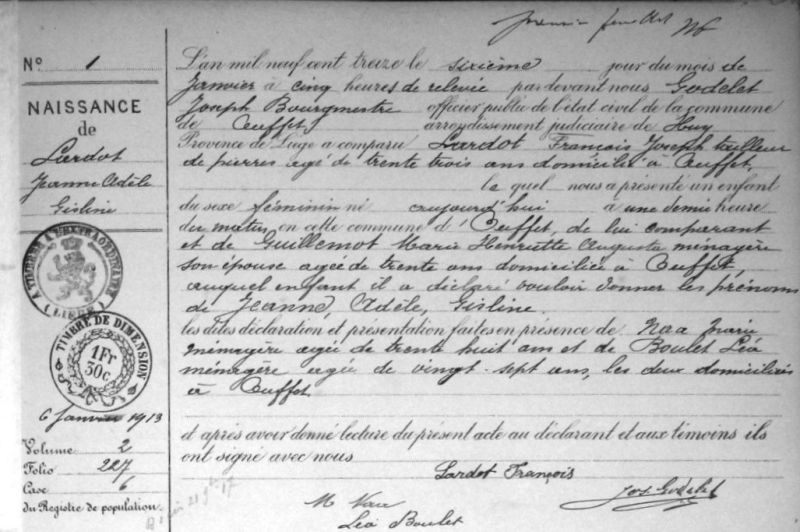 N° 1
NAISSANCE
de
Lardot
Jeanne Adèle
Gisline
A TIMBRER A L'EXTRAORDINAIRE
(LIEGE)
TIMBRE DE DIMENSION
1Fr
50c
6 Janvier 1913
Volume 2
Folio 227
Case 6
du Registre de population.
L'an mil neuf cent treize le sixième jour du mois de
Janvier à cinq heures de relevée par devant nous Godelet
Joseph Bourgmestre officier public de l'état civil de la commune
de Ouffet, arrondissement judiciaire de Huy
Province de Liège a comparu Lardot François Joseph tailleur
de pierres agé de trente trois ans domicilié à Ouffet,
le quel nous a présenté un enfant
du sexe féminin né aujourd'hui à une demie heure
du matin en cette commune d'Ouffet, de lui comparant
et de Guillemot Marie Henriette Augusta ménagère
son épouse agée de trente ans domiciliée à Ouffet,
auquel enfant il a déclaré vouloir donner les prénoms
de Jeanne, Adèle, Gisline.
les dites déclaration et présentation faites en présence de Naa Marie
ménagère agée de trente huit ans et de Boulet Léa
ménagère agée de vingt-sept ans, les deux domiciliées
à Ouffet.
et après avoir donné lecture du présent acte au déclarant et aux témoins ils
ont signé avec nous
Lardot François
Jos Godelet
M Naa
Léa Boulet